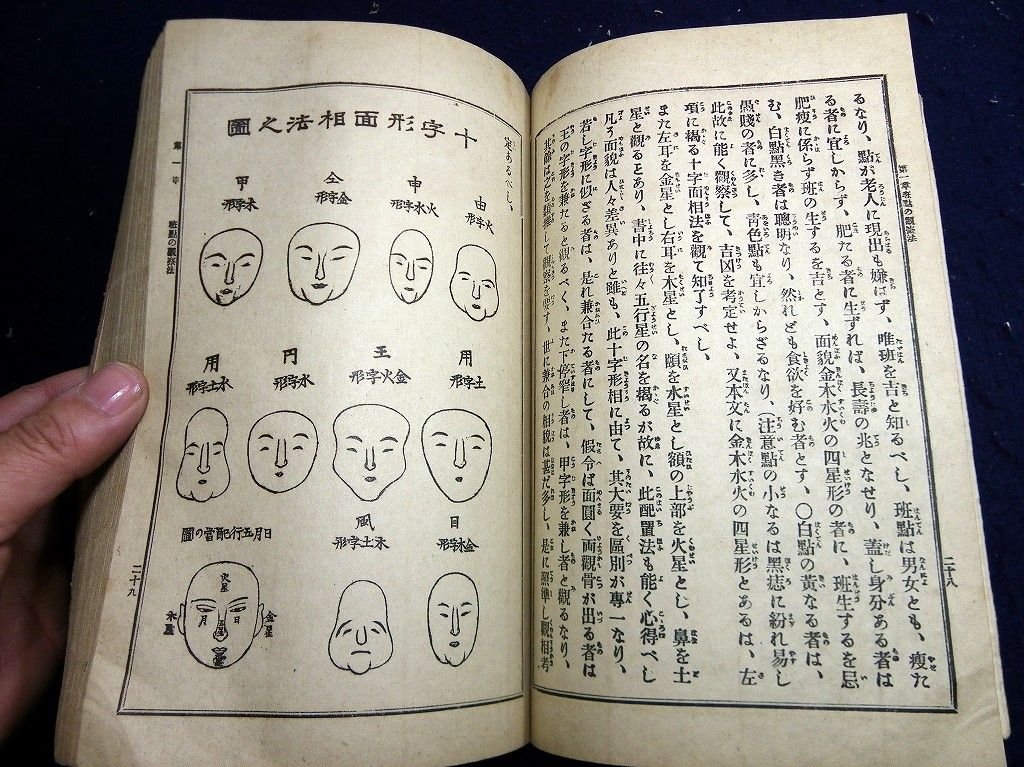 第一章斑點の觀察法
るなり、點が老人に現出も嫌はず、唯班を吉と知るべし、班點は男女とも、瘦た
る者に宜しからず、肥たる者に生ずれば、長壽の兆となせり、蓋し身分ある者は
肥瘦に係らず班の生するを吉とす、面貌金木水火の四星形の者に、班生するを忌
む、白點黑き者は聰明なり、然れども食欲を好む者とす、〇白點の黃なる者は、
愚賤の者に多し、靑色點も宜しからざるなり、(注意點の小なるは黑痣に紛れ易し
此故に能く觀察して、吉凶を考定せよ、又本文に金木水火の四星形とあるは、左
項に揭る十字面相法を觀て知了すべし、
また左耳を金星とし右耳を木星とし、頤を水星とし額の上部を火星とし、鼻を土
星と觀るヿあり、書中に往々五行星の名を揭るが故に、此配置法も能く心得べし
凡ろ面貌は人々差異ありと雖も、此十字形相に由て、其大要を區別が專一なり、
若し字形に似ざる者は、是れ兼合たる者にして、假令ば面圓く両觀骨が出る者は
王の字形を兼たると觀るべく、また下停窄し者は、甲字形を兼し者と觀るなり、
二十八
十字形面相法之圖
第一章
斑點の觀察法
由
火字形
申
火水字形
仝
金字形
甲
木字形
用
土字形
王
金火字形
円
水字形
用
水土字形
目
金木字形
風
水土字形
日月五行配當の圖
火星
日
月
土星
水星
金星
木星
二十九